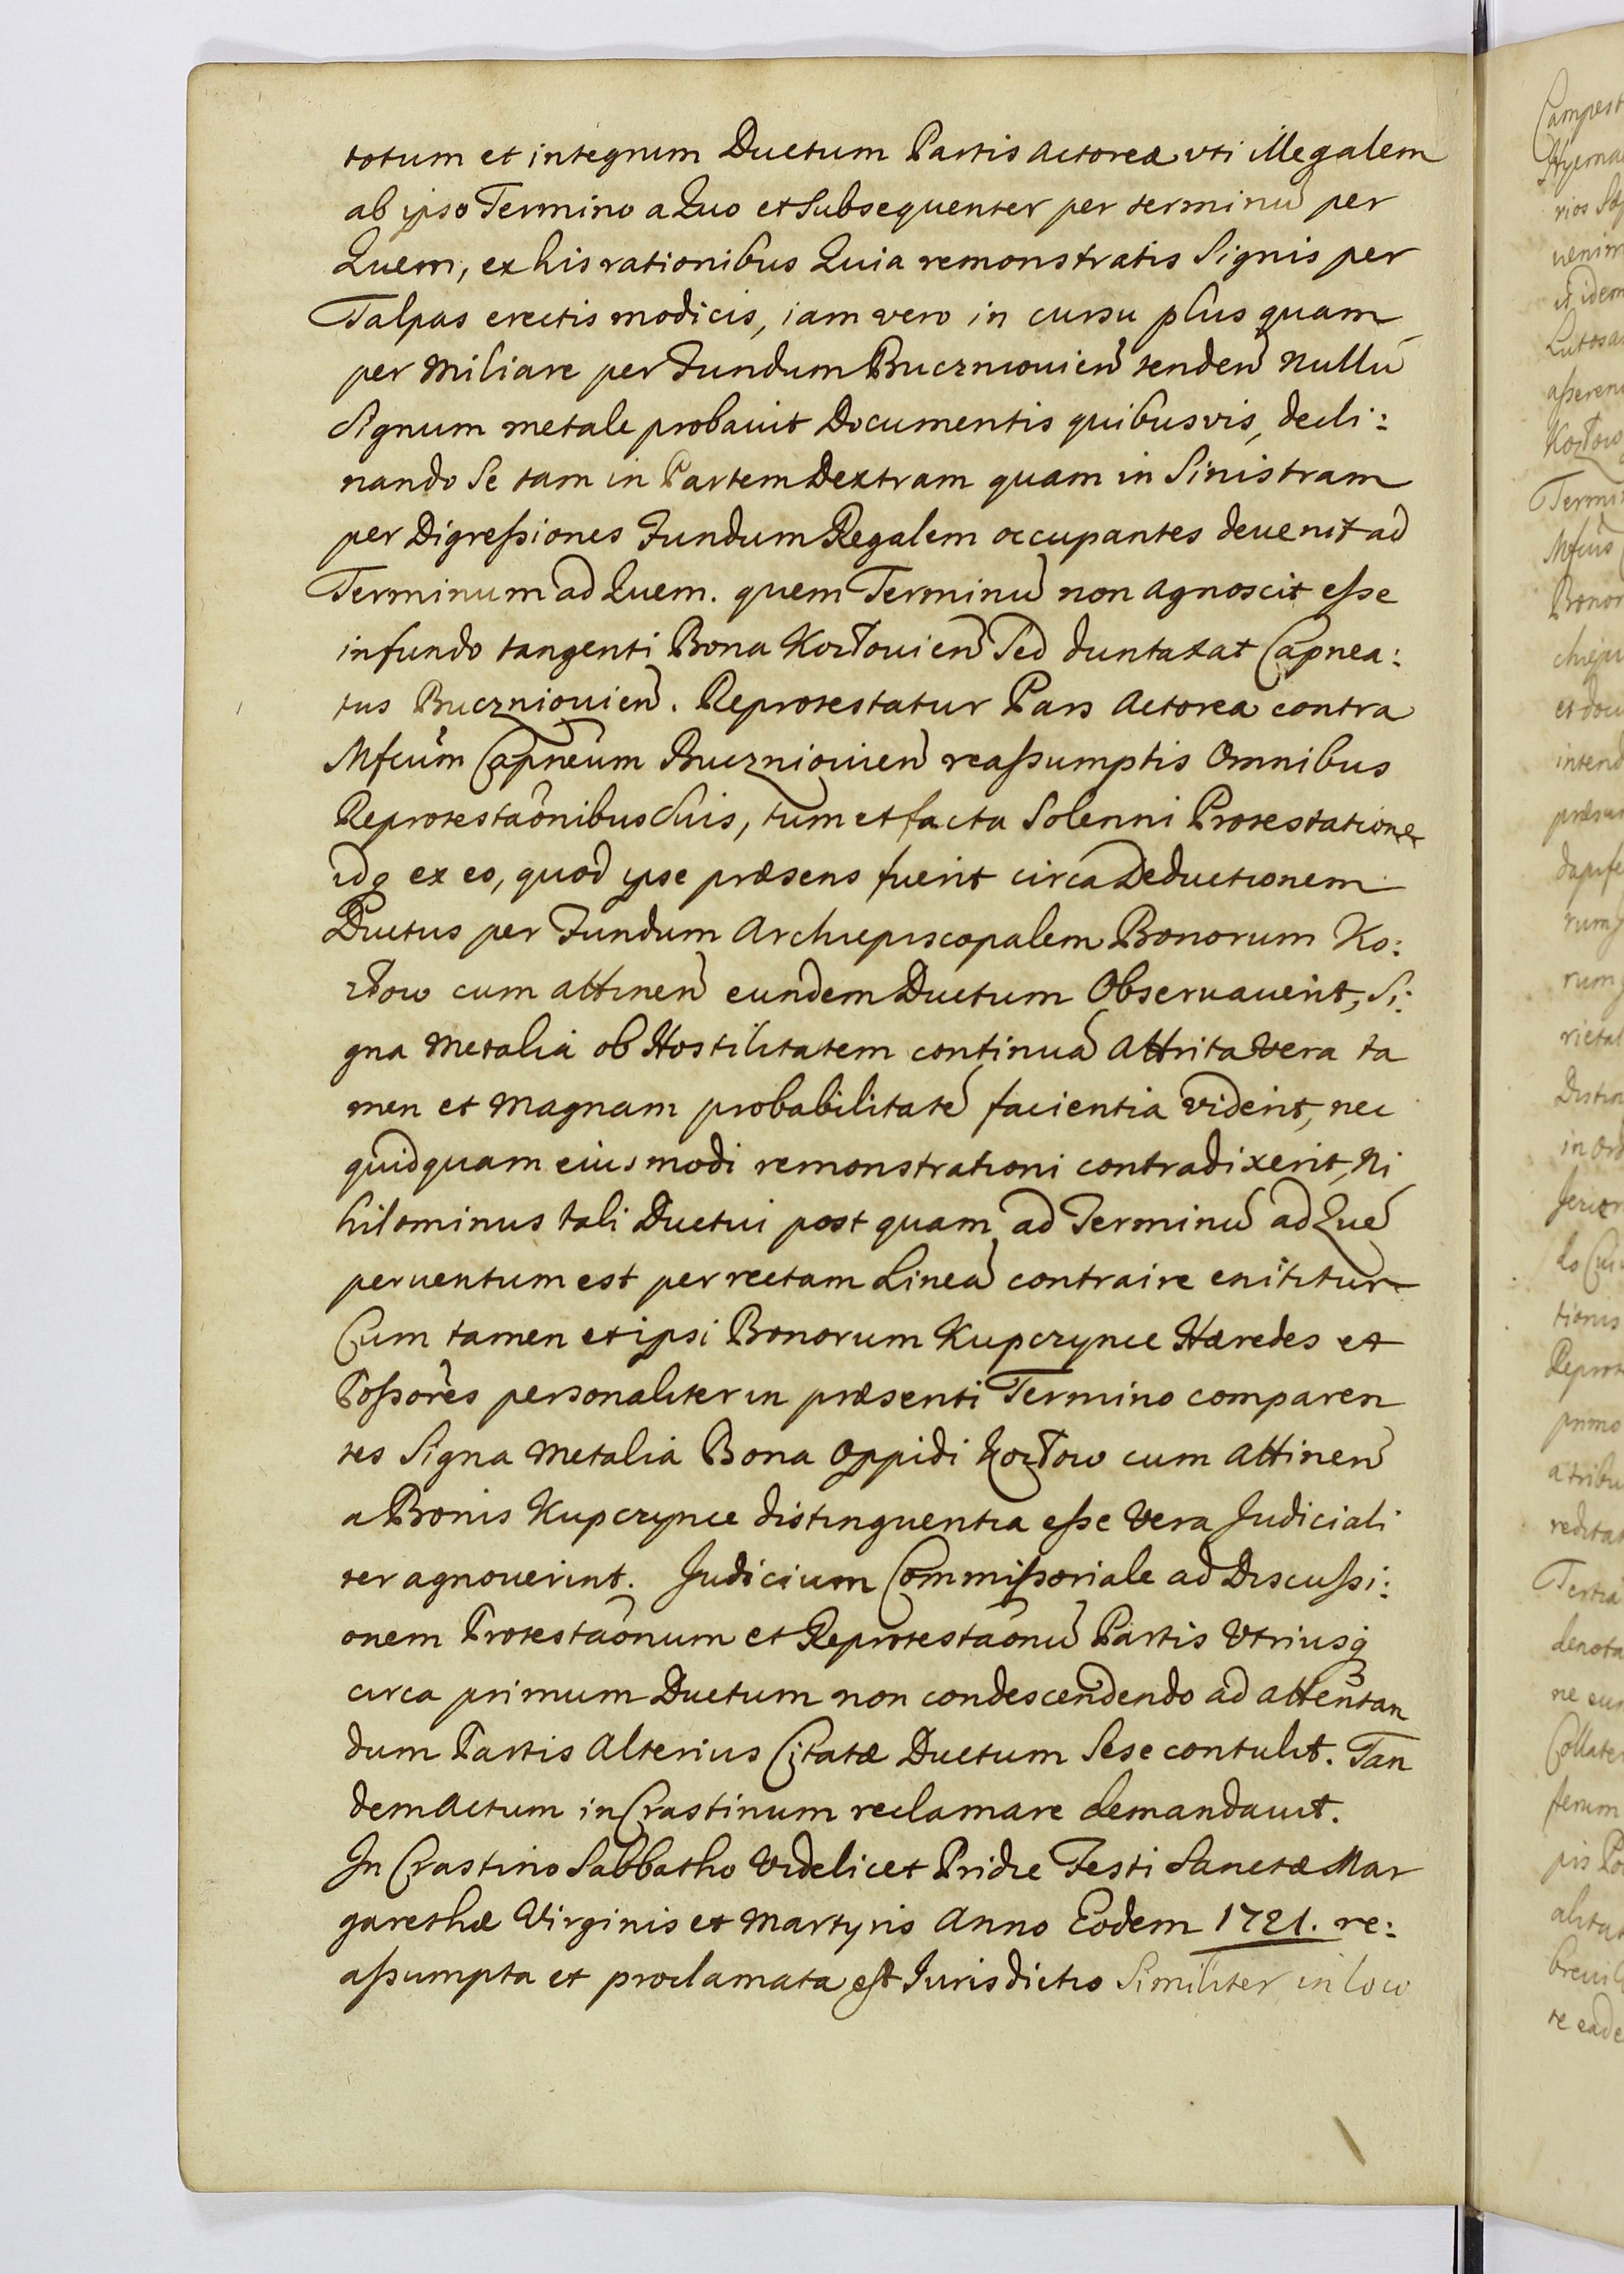 totum et integrum Ductum Partis Actoreæ uti illegalem
ab ipso Termino a Quo et Subsequenter per terminũ per
Quem, ex his rationibus Quia remonstratis Signis per
Talpas erectis modicis, iam vero in cursu plus quam
per Miliare per Fundum Buczniouien̄ tenden̄ Nullũ
Signum metale probauit Documentis quibusvis, decli:
nando Se tam in Partem Dextram quam in Sinistram
per Digreſsiones Fundum Regalem occupantes deuenit ad
Terminum ad Quem. quem Terminũ non agnoscit eſse
in fundo tangenti Bona Kozłouien̄ Sed duntaxat Capnea:
tus Buczniouien̄. Reprotestatur Pars Actorea contra
Mfcũm Capnẽum Buczniouien̄ reaſsumptis Omnibus
Reprotestaõnibus Suis, tum et facta Solenni Protestatione
idq ex eo, quod ipse præsens fuerit circa Deductionem
Ductus per Fundum Archiepiscopalem Bonorum Ko:
złow cum attinen̄ eundem Ductum Obseruauerit, Si:
gna Metalia ob Hostilitatem continuã Attrita Vera ta
men et Magnam probabilitatẽ facientia viderit, nec
quidquam eiusmodi remonstrationi contradixerit, Ni
hilominus tali Ductui post quam ad Terminũ ad Quẽ
peruentum est per rectam Lineã contraire enititur
Cum tamen et ipsi Bonorum Kupczynce Hæredes et
Poſsorẽs personaliter in præsenti Termino comparen
tes Signa Metalia Bona Oppidi Kozłow cum Attinen̄
a Bonis Kupczynce distinguentia eſse Vera Judiciali
ter agnouerint. Judicium Commiſsoriale ad Discuſsi:
onem Protestaõnum et Reprotestaõnũ Partis Utriusq̃
circa primum Ductum non condescendendo ad attẽntan
dum Partis Alterius Citatæ Ductum Sese contulit. Tan
dem Actum in Crastinum reclamare demandauit.
In Crastino Sabbatho Videlicet Pridie Festi Sanctæ Mar
garethæ Virginis et Martyris Anno Eodem 1721. re:
aſsumpta et proclamata est Jurisdictio Similiter in loco